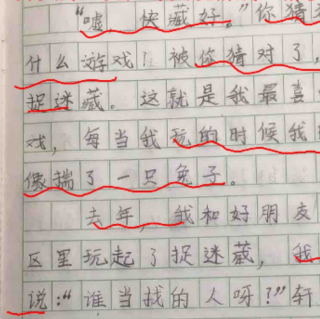 “嘘，快藏好。”你猜
什么游戏！被你猜对了，
捉迷藏。这就是我最喜
戏，每当我玩的时候我
像揣了一只兔子。
去年，我和好朋友
区里玩起了捉迷藏，我
说：“谁当找的人呀？”轩